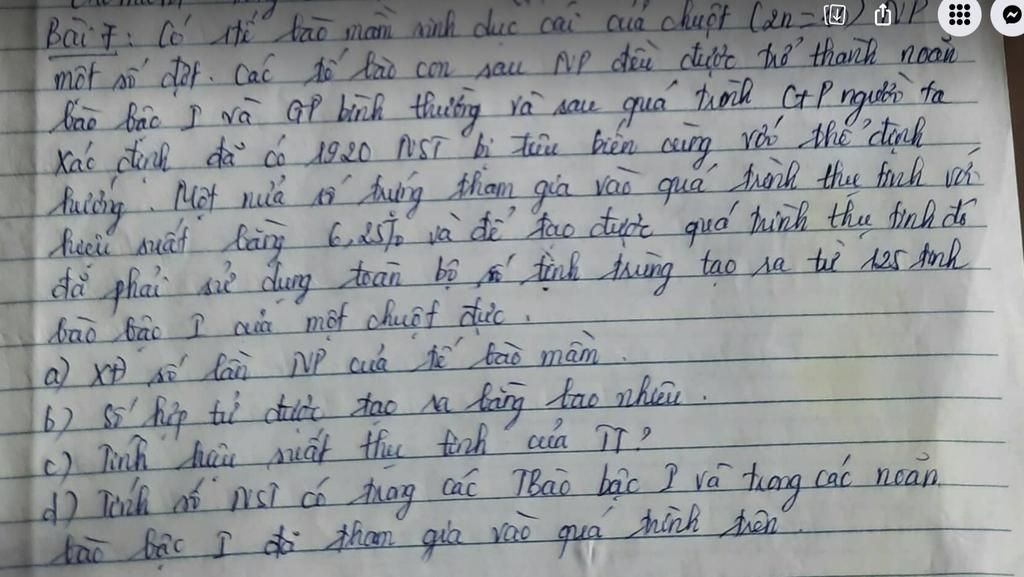 Bài 7: Có 1 tế bào mầm sinh dục cái của chuột (2n = NP
một số đợt. Các tế bào con sau NP đều được trở thành noãn
bào bậc I và GP bình thường và sau quá trình GP người ta
xác định đã có 1920 NST bị tiêu biến cùng với thể định
hướng. Một nửa số trứng tham gia vào quá trình thụ tinh với
hiệu suất bằng 6,25% và để tạo được quá trình thụ tinh đó
đã phải sử dụng toàn bộ số tinh trùng tạo ra từ 125 tinh
bào bậc I của một chuột đực.
a) XĐ số lần NP của tế bào mầm.
b) Số hợp tử được tạo ra bằng bao nhiêu.
c) Tính hiệu suất thụ tinh của TT?
d) Tính số NST có trong các TBào bậc I và trong các noãn
bào bậc I đã tham gia vào quá trình trên.